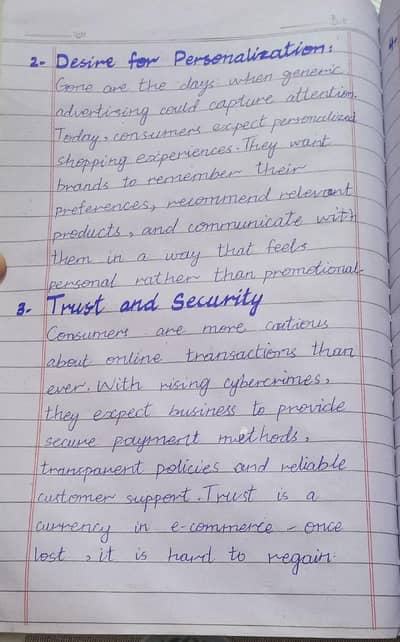 2- Desire for Personalization:
Gone are the days when generic
advertising could capture attention.
Today, consumers expect personalized
shopping experiences. They want
brands to remember their
preferences, recommend relevant
products, and communicate with
them in a way that feels
personal rather than promotional.
3- Trust and Security
Consumers are more cautious
about online transactions than
ever. With rising cybercrimes,
they expect business to provide
secure payment methods,
transparent policies and reliable
customer support. Trust is a
currency in e-commerce - once
lost, it is hard to regain.